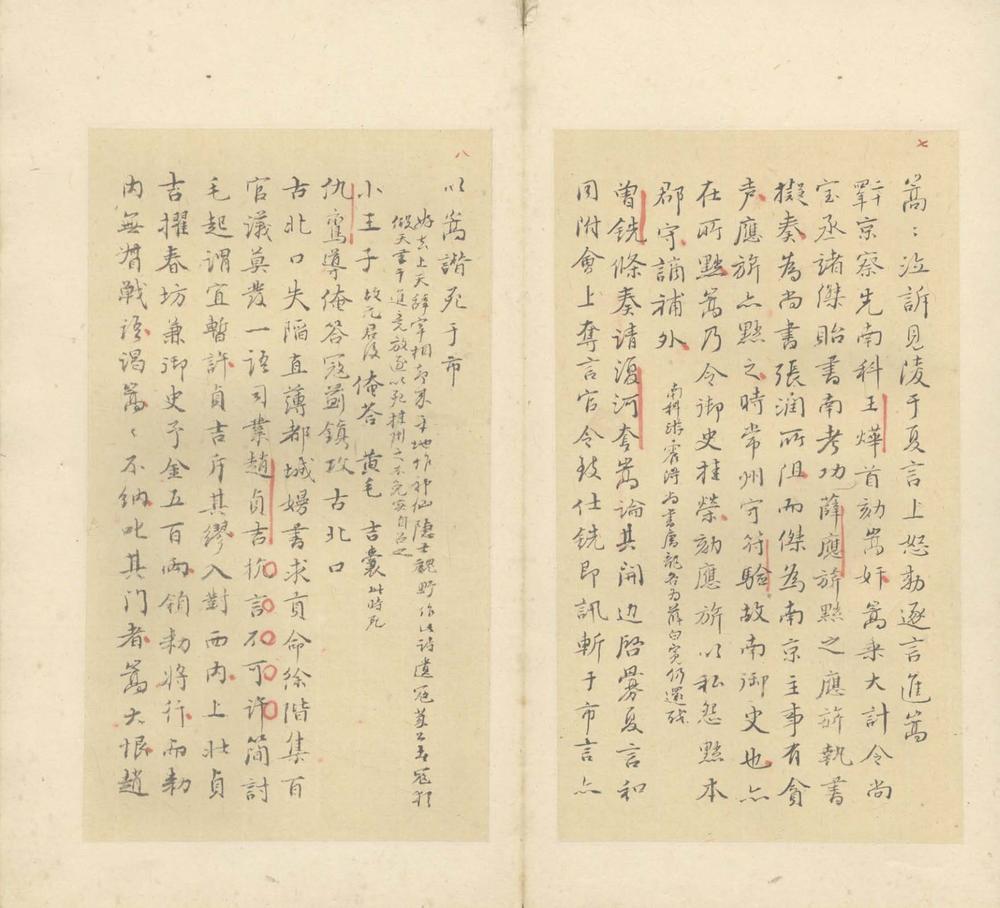 七
嵩〻泣訴見陵于夏言上怒勅逐言進嵩
二十罪京察先南科王燁首劾嵩奸嵩乘大計令尚
宝丞諸傑貽書南考功薛應旂黜之應旂執書
擬奏為尚書張潤所阻而傑為南京主事有貪
声應旂亦黜之時常州守符驗故南御史也亦
在所黜嵩乃令御史桂榮劾應旂以私怨黜本
郡守謫補外
南科游震得尚書唐龍各為薛白寃仍還職
曾銑條奏請復河套嵩論其開边啓釁夏言和
同附會上奪言官令致仕銑即訊斬于市言亦
八
以嵩譖死于市
好玄上天辞宰相却來平地作神仙隱士魏野作此詩遺寇萊公
做天書干進竟放逐以死桂州之不免實自召之
小王子 故元君後 俺荅 黄毛 吉囊 此時死
仇鸞導俺荅冦薊鎮攻古北口
古北口失陷直薄都城嫚書求貢命徐階集百
官議莫發一語司業趙貞吉抗言不可許簡討
毛起謂宜暫許貞吉斥其繆入對西内上壯貞
吉擢春坊兼御史予金五百兩領勅將行而勅
内無督戰語謁嵩〻不納叱其門者嵩大恨趙